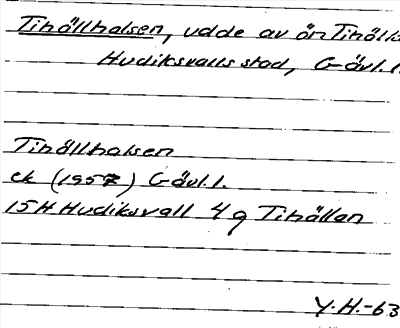 Tihällhalsen, udde av ön Tihäll
Hudiksvalls stad, Gävl.l.
Tihällhalsen
ek (1957) Gävl.l.
15H Hudiksvall 4g Tihällan
Y.H.-63